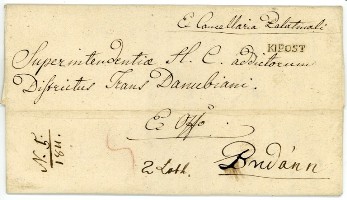 Ex Cancellaria Palatinali
KIPOST
Superintendentiæ H. C. addictorum
Districtus Trans Danubiani.
Ex Offo
N. 5.
1811.
2 Loth.
Budánn